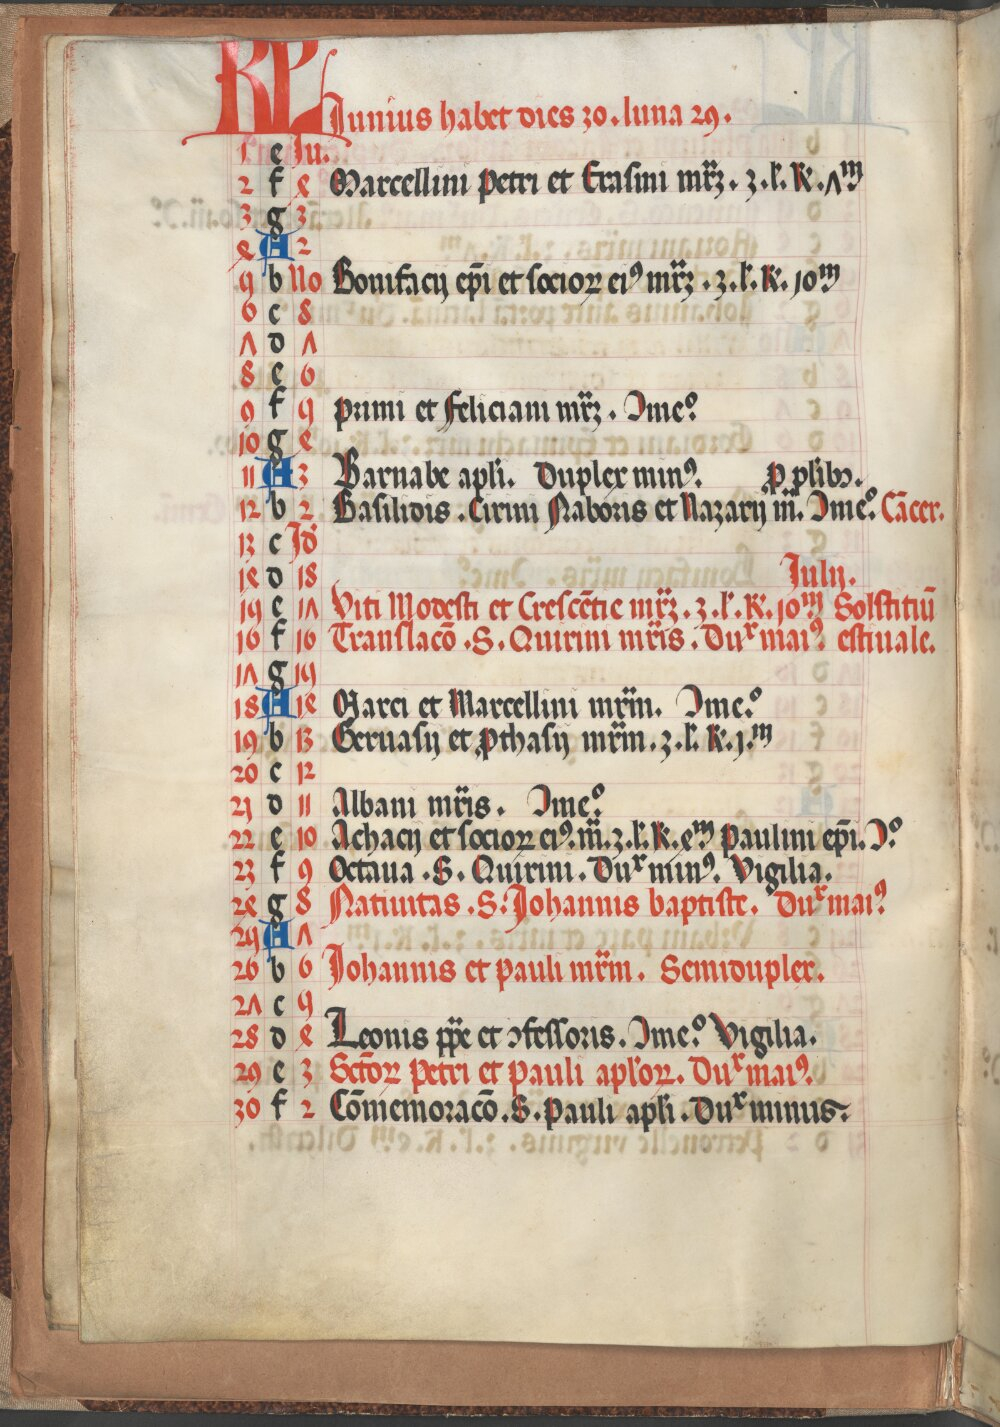 KL Junius habet dies 30. luna 29.
1 e Ju.
2 f e Marcellini Petri et Erasmi mr̄ꝫ. 3. l'. K. Λᵐ
3 g 3
e A 2
9 b No Bonifacij ep̄i et socioꝝ eiꝰ mr̄ꝫ. 3. l'. K. 10ᵐ
6 c 8
Λ d Λ
8 e 6
9 f 9 Primi et Feliciani mr̄ꝫ. Jmeº
10 g e
11 A 3 Barnabe apl'i. Duplex minꝰ. ꝑ pl'ibꝫ.
12 b 2 Basilidis. Cirini Naboris et Nazarij m̄. Jmeº. Cāncer.
13 c Jd'
1e d 18 Julij.
19 e 1Λ Viti Modesti et Crescētie mr̄ꝫ. 3. l'. K. 10ᵐ Solstitiū
16 f 16 Translacō. S. Quirini mr̄is. Duˣ maiꝰ estiuale.
1Λ g 19
18 A 1e Marci et Marcellini mr̄m. Jmeº.
19 b 13 Geruasij et ꝓthasij mr̄m. 3. l'. K. 1.ᵐ
20 c 12
21 d 11 Albani mr̄is. Jmeº.
22 e 10 Achacij et socioꝝ eiꝰ. m̄. 3. l'. K. eᵐ Paulini ep̄i. Jº
23 f 9 Octaua. S. Quirini. Duˣ minꝰ. Vigilia.
2e g 8 Natiuitas. S. Johannis baptiste. Duˣ maiꝰ
29 A Λ
26 b 6 Johannis et Pauli mr̄m. Semiduplex.
2Λ c 9
28 d e Leonis pp̄e et ꝯfessoris. Jmeº Vigilia.
29 e 3 Sct̄oꝝ Petri et Pauli apl'oꝝ. Duˣ maiꝰ.
30 f 2 Cōmemoracō. S. Pauli apl'i. Duˣ minus.